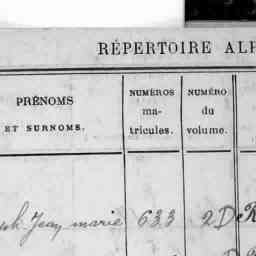 RÉPERTOIRE ALP
PRÉNOMS
ET SURNOMS.
NUMÉROS
ma-
tricules.
NUMÉRO
du
volume.
Jean marie 633 2D R